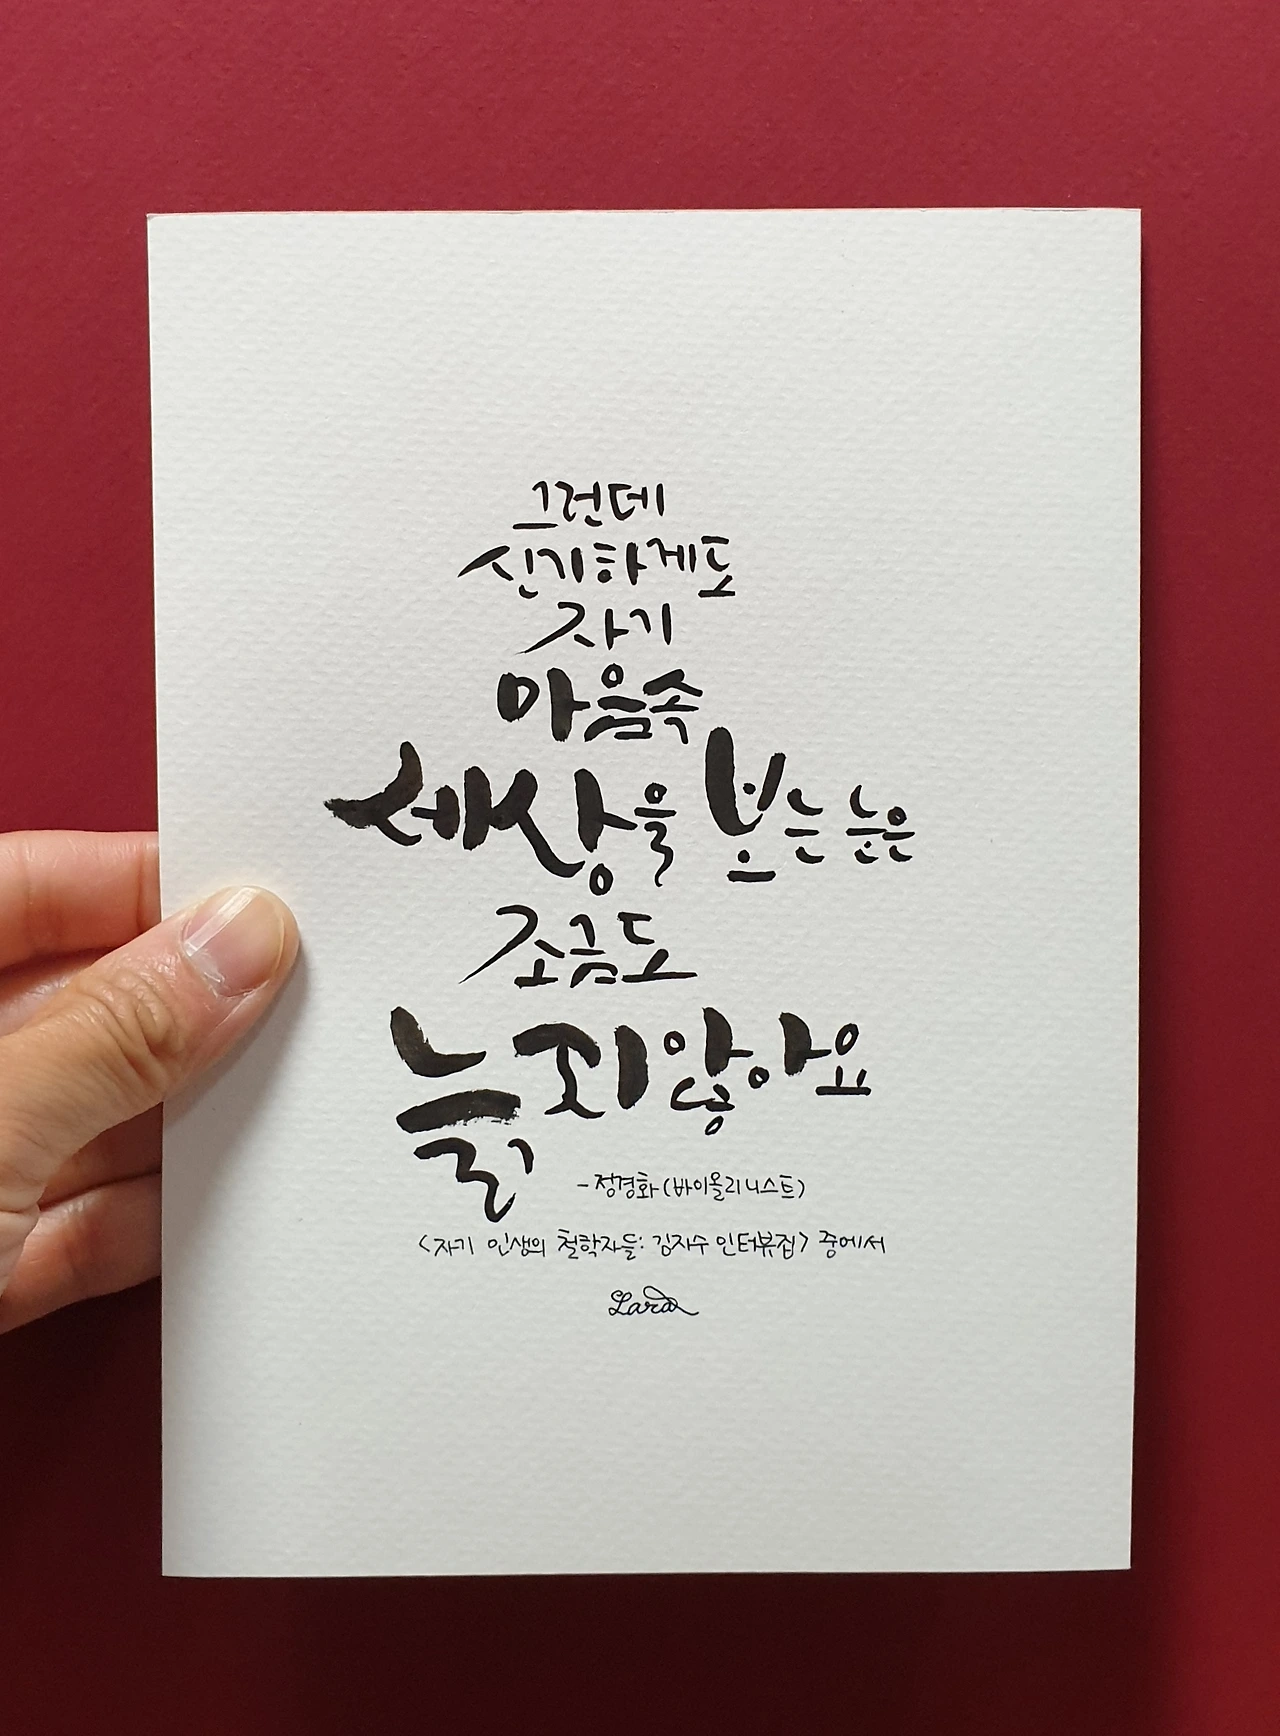 그런데
신기하게도
자기
마음속
세상을 보는 눈은
조금도
늙지 않아요
- 정경화 (바이올리니스트)
<자기 인생의 철학자들: 김지수 인터뷰집> 중에서
Lara